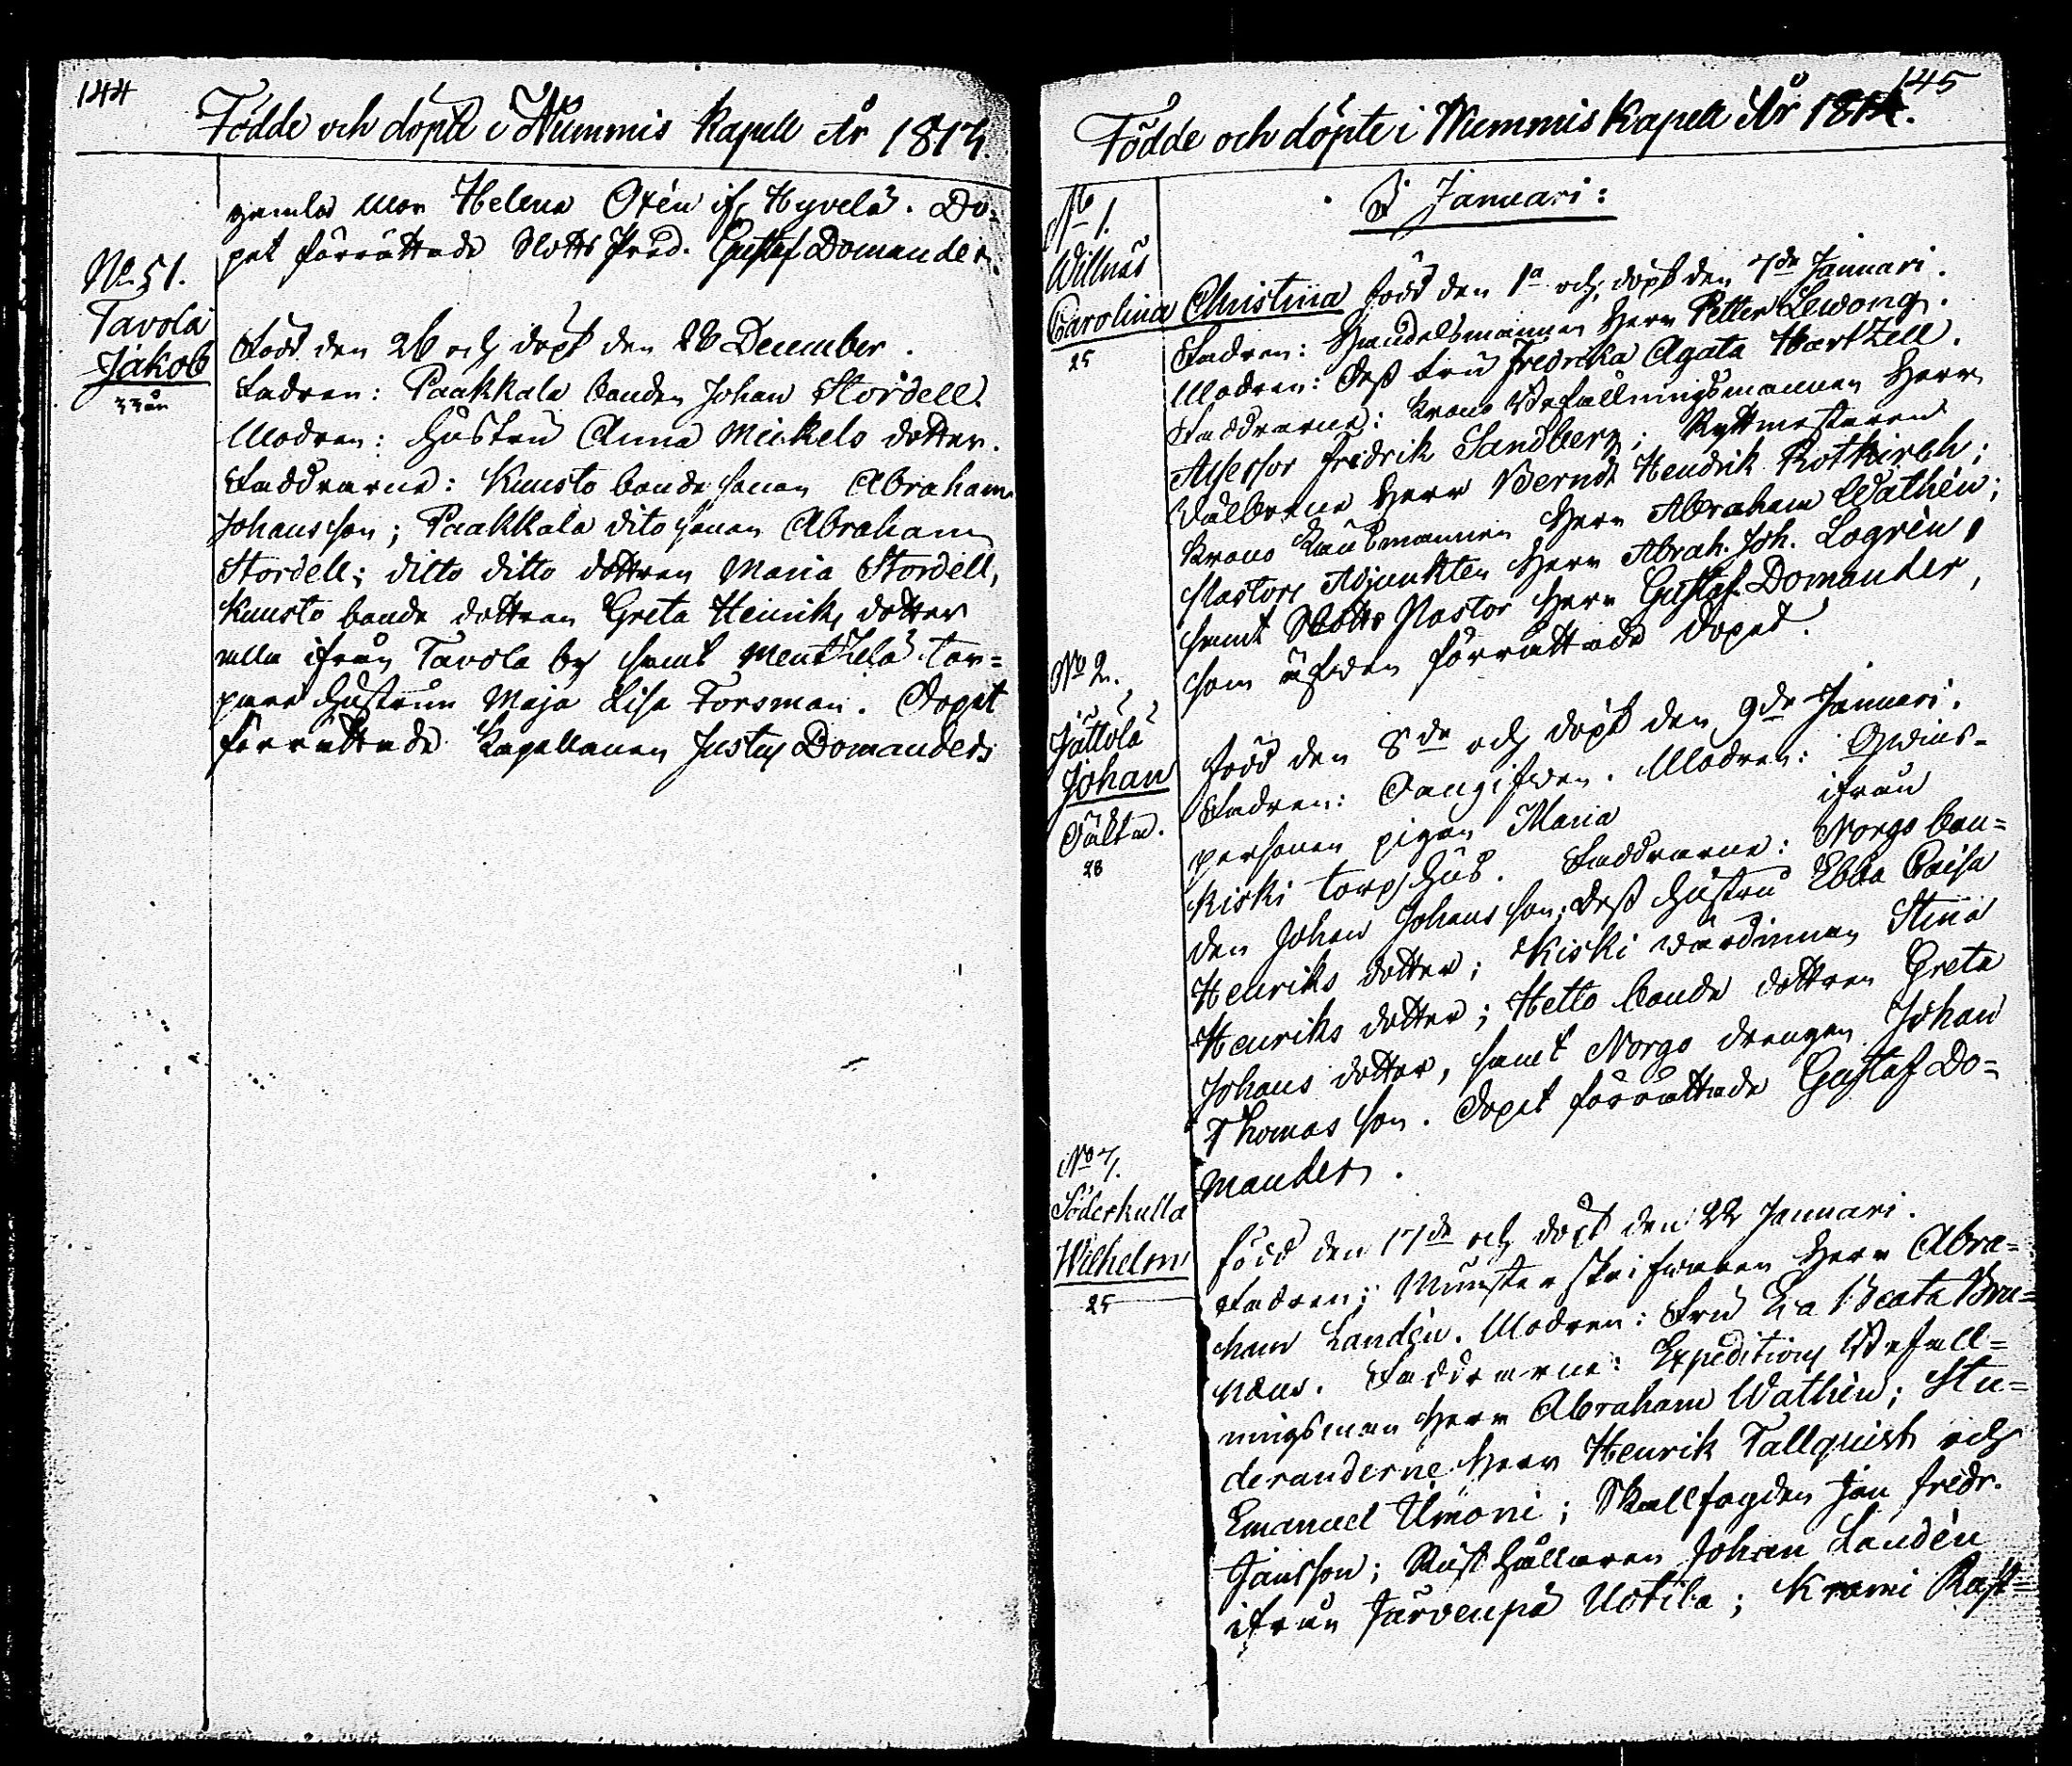 144
Födde och döpte i Nummis Kapell År 1813.
gamla Mor Helena Oxén if. Hyvelä. Do=
pet förrättade Slotts Præd. Gustaf Domander.
No 51.
Tavola
Jakob
33 år
Född den 26 och döpt den 28 December.
Fadren: Paakkala bonden Johan Stordell.
Modren: Hustru Anna Mickels dotter.
Faddrarne: Knusto bonde sonen Abraham
Johansson; Paakkala dito sonen Abraham
Stordell; ditto ditto dottren Maria Stordell,
Knusto bonde dottren Greta Heinriks dotter
alla ifrån Tavola by samt Menthelä Tor=
pare hustrun Maja Lisa Forsman. Dopet
förrättade Kapellanen Justus Domander.
145
Födde och döpte i Nummis Kapell År 1814.
I Januari:
No 1.
Willnäs
Carolina Christina född den 1a och döpt den 7de Januari.
25
Fadren: Handelsmannen Herr Petter Lewong.
Modren: Dess Fru Fredrika Agata Hartzell.
Faddrarne: Krono Befallningsmannen Herr
Assessor Fredrik Sandberg; Ryttmästaren
Välborne Herr Berndt Hendrik Rotkirch;
Krono Länsmannen Herr Abraham Wathén;
Pastors Adjunkten Herr Abrah. Joh. Logrén,
samt Slotts Pastor Herr Gustaf Domander,
som äfven förrättade dopet.
No 2.
Jättölä
Johan
Oäkta.
28
född den 8de och döpt den 9de Januari.
Fadren: Oangifven. Modren: Qvins-
personen pigan Maria ifrån
Kiski torpshus. Faddrarne: Norgo bon=
den Johan Johansson, dess hustru Ebba Caisa
Henriks dotter; Kiski värdinnan Stina
Henriks dotter; Hello bonde dottren Greta
Johans dotter, samt Norgo drengen Johan
Thomas son. Dopet förrättade Gustaf Do=
mander.
No 7.
Söderkulla
Wilhelm
25
född den 17de och döpt den 22 Januari.
Fadren: Mönsterskrifvaren Herr Abra=
ham Landén. Modren: Fru Eva Beata Bru=
næus. Faddrarne: Expeditions Befall=
ningsman Herr Abraham Wathén; Stu=
deranderne Herr Henrik Tallquist och
Emanuel Umöni; Skallfogden Jan Fredr.
Jansson; Rusthållaren Johan Landén
ifrån Järvenpä Uotila; Krami Rust=